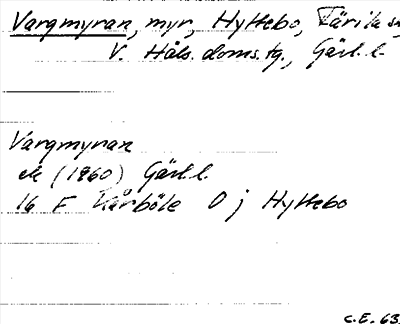 Vargmyran, myr, Hyttebo, Färila sn,
V. Häls. doms.tg., Gävl. l.
Vargmyran
ek (1960) Gävl. l.
16 F Kårböle O j Hyttebo
C.E. 63